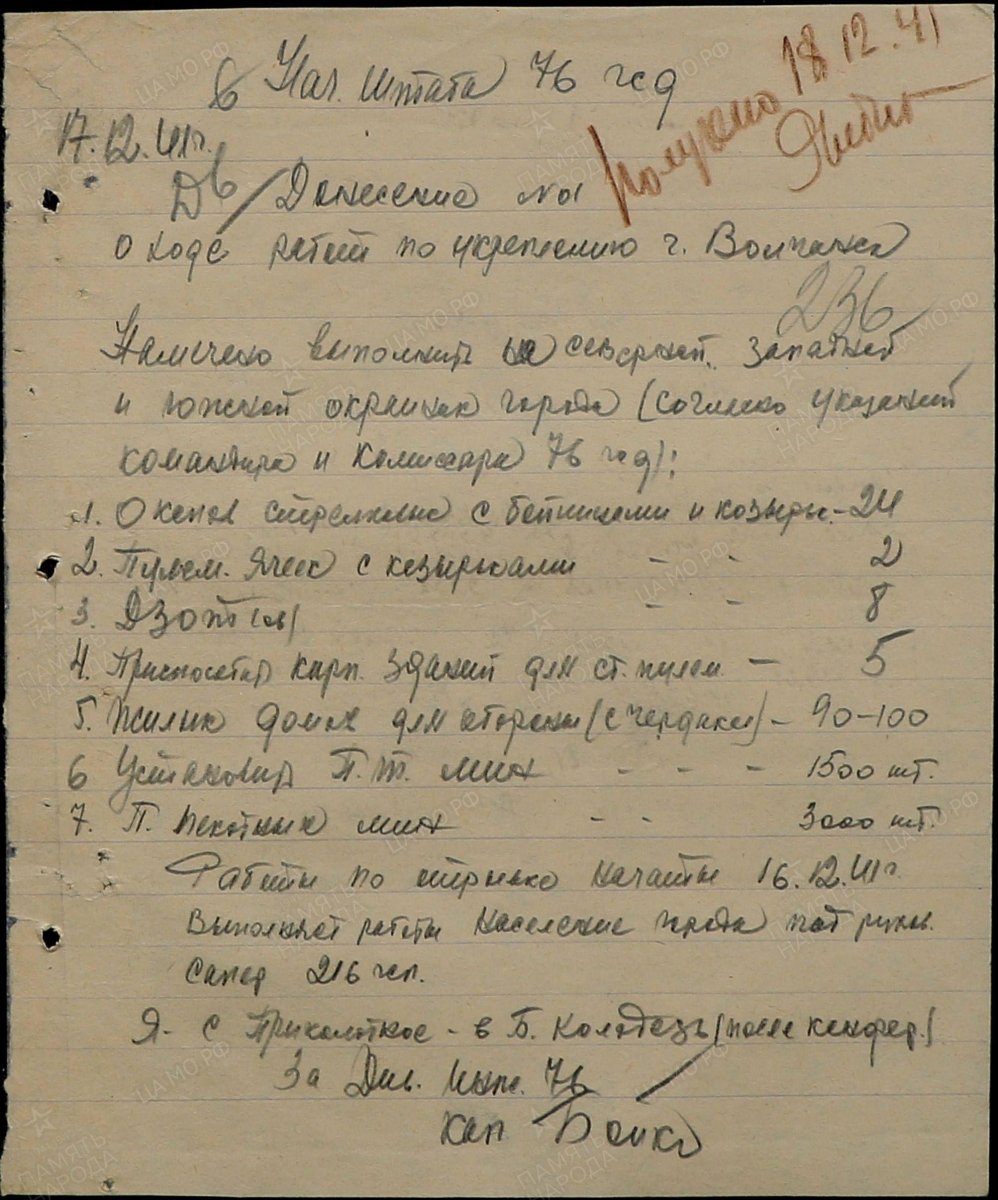 Нач. штаба 76 гсд
Получено 18.12.41
17.12.41г.
Донесение №1
о ходе работ по укреплению г. Волчанска
236
Намечено выполнить на северной, западной
и южной окраинах города (согласно указаний
командира и комиссара 76 гсд):
1. Окопов стрелковых с бойницами и козырь. - 24
2. Пулем. ячеек с козырьками - - 2
3. ДЗОТ(ов) - - 8
4. Приспособить кирп. зданий для ст. пулем - 5
5. Жилых домов для обороны (с чердаками) - 90-100
6 Установить П.Т. мин - - - 1500 шт.
7. П. пехотных мин - - 3000 шт.
Работы по стр-ву начаты 16.12.41г.
Выполняет работы население города под руков.
сапер 216 гсп.
Я - с Приколотное - в Б. Колодезь (после конфер.)
За Див. инж. 76
кап Бойко